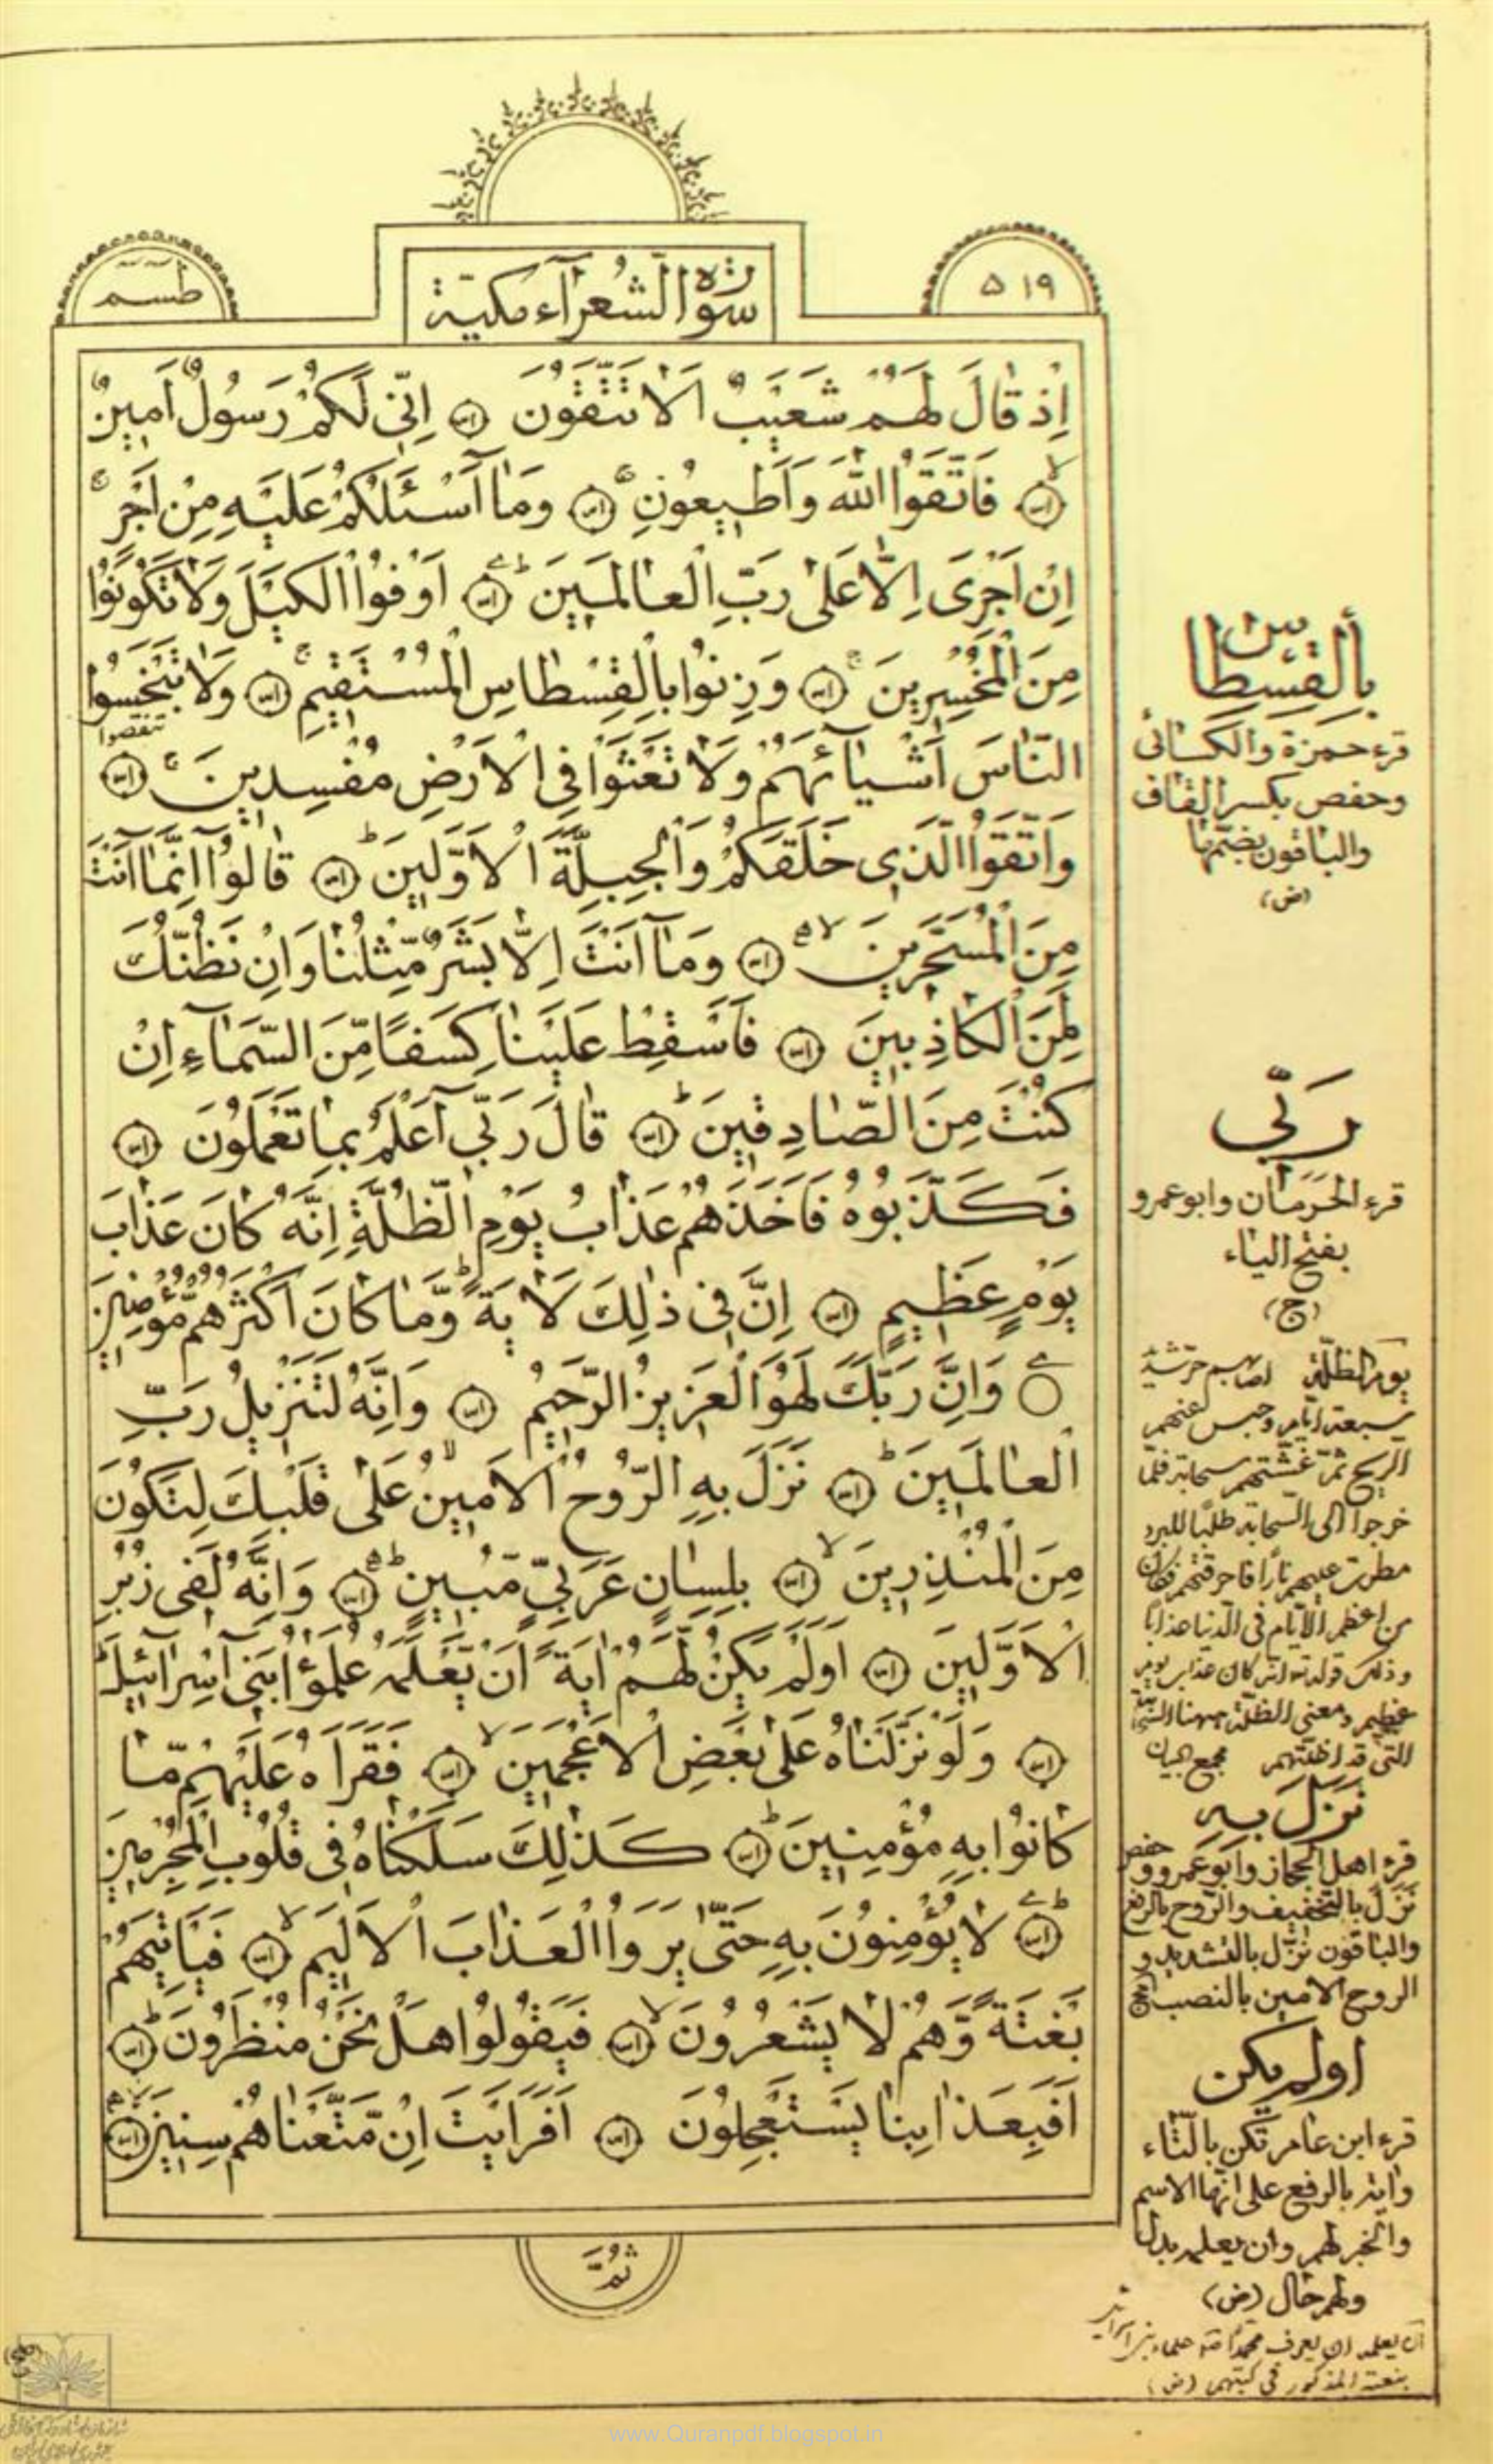 ٥١٩
سورة الشعرآء مكية
طسم
اِذْ قٰالَ لَهُمْ شُعَيْبٌ اَلاٰ تَتَّقُونَ اِنّى لَكُمْ رَسُولٌ اَمينٌ
فَاتَّقُوا اللهَ وَاَطيعُونِ وَمٰا اَسْئَلُكُمْ عَلَيْهِ مِنْ اَجْرٍ
اِنْ اَجْرِىَ اِلاّٰ عَلىٰ رَبِّ الْعٰالَمينَ اَوْفُوا الْكَيْلَ وَلاٰ تَكُونُوا
مِنَ الْمُخْسِرينَ وَزِنُوا بِالْقِسْطٰاسِ الْمُسْتَقيمِ وَلاٰ تَبْخَسُوا
تنقصوا
النّٰاسَ اَشْيٰآئَهُمْ وَلاٰ تَعْثَوْا فِى الْاَرْضِ مُفْسِدينَ
وَاتَّقُوا الَّذى خَلَقَكُمْ وَالْجِبِلَّةَ الْاَوَّلينَ قٰالُوا اِنَّمٰا اَنْتَ
مِنَ الْمُسَحَّرينَ وَمٰا اَنْتَ اِلاّٰ بَشَرٌ مِّثْلُنٰا وَاِنْ نَظُنُّكَ
لَمِنَ الْكٰاذِبينَ فَاَسْقِطْ عَلَيْنٰا كِسَفًا مِّنَ السَّمٰآءِ اِنْ
كُنْتَ مِنَ الصّٰادِقينَ قٰالَ رَبّى اَعْلَمُ بِمٰا تَعْمَلُونَ
فَكَذَّبُوهُ فَاَخَذَهُمْ عَذٰابُ يَوْمِ الظُّلَّةِ اِنَّهُ كٰانَ عَذٰابَ
يَوْمٍ عَظيمٍ اِنَّ فى ذٰلِكَ لَاٰيَةً وَّمٰا كٰانَ اَكْثَرُهُمْ مُؤْمِنينَ
وَاِنَّ رَبَّكَ لَهُوَ الْعَزيزُ الرَّحيمُ وَاِنَّهُ لَتَنْزيلُ رَبِّ
الْعٰالَمينَ نَزَلَ بِهِ الرُّوحُ الْاَمينُ عَلىٰ قَلْبِكَ لِتَكُونَ
مِنَ الْمُنْذِرينَ بِلِسٰانٍ عَرَبِىٍّ مُبينٍ وَاِنَّهُ لَفى زُبُرِ
الْاَوَّلينَ اَوَلَمْ يَكُنْ لَّهُمْ اٰيَةً اَنْ يَّعْلَمَهُ عُلَمٰؤُا بَنى اِسْرٰآئيلَ
وَلَوْ نَزَّلْنٰاهُ عَلىٰ بَعْضِ الْاَعْجَمينَ فَقَرَاَهُ عَلَيْهِمْ مّٰا
كٰانُوا بِهِ مُؤْمِنينَ كَذٰلِكَ سَلَكْنٰاهُ فى قُلُوبِ الْمُجْرِمينَ
لاٰ يُؤْمِنُونَ بِهِ حَتّىٰ يَرَوُا الْعَذٰابَ الْاَليمَ فَيَأْتِيَهُمْ
بَغْتَةً وَّهُمْ لاٰ يَشْعُرُونَ فَيَقُولُوا هَلْ نَحْنُ مُنْظَرُونَ
اَفَبِعَذٰابِنٰا يَسْتَعْجِلُونَ اَفَرَاَيْتَ اِنْ مَّتَّعْنٰاهُمْ سِنينَ
ثُمَّ
بِالْقِسْطٰاسِ
قرء حمزة والكسائى
وحفص بكسر القاف
والباقون بضمّها
(ض)
رَبّى
قرء الحَرَمّان وابوعمرو
بفتح الياء
(ج)
يوم الظلّة اصابهم حرّ شديد
سبعة ايّام وحبس عنهم
الريح ثمّ غشّتهم سحابة فلمّا
خرجوا الى السحابة طلبًا للبرد
مطرت عليهم نارًا فاحرقتهم فكان
من اعظم الايّام فى الدّنيا عذابًا
وذلك قوله انّه كان عذاب يوم
عظيم ومعنى الظلّة ههنا السّحابة
الّتى قد اظلّتهم مجمع البيان
نَزَلَ بِهِ
قرء اهل الحجاز وابوعمرو وحفص
نَزَلَ بالتخفيف والرّوح بالرفع
والباقون نزّل بالتشديد و
الروح الامين بالنصب
اولم يكن
قرء ابن عامر تكن بالتّاء
واية بالرفع على انّها الاسم
والخبر لهم وان يعلمه بدل
ولهم حال (ض)
ان يعلمه ان يعرف محمّدًا علماء بنى اسرائيل
بنعته المذكور فى كتبهم (ض)
www.Quranpdf.blogspot.in